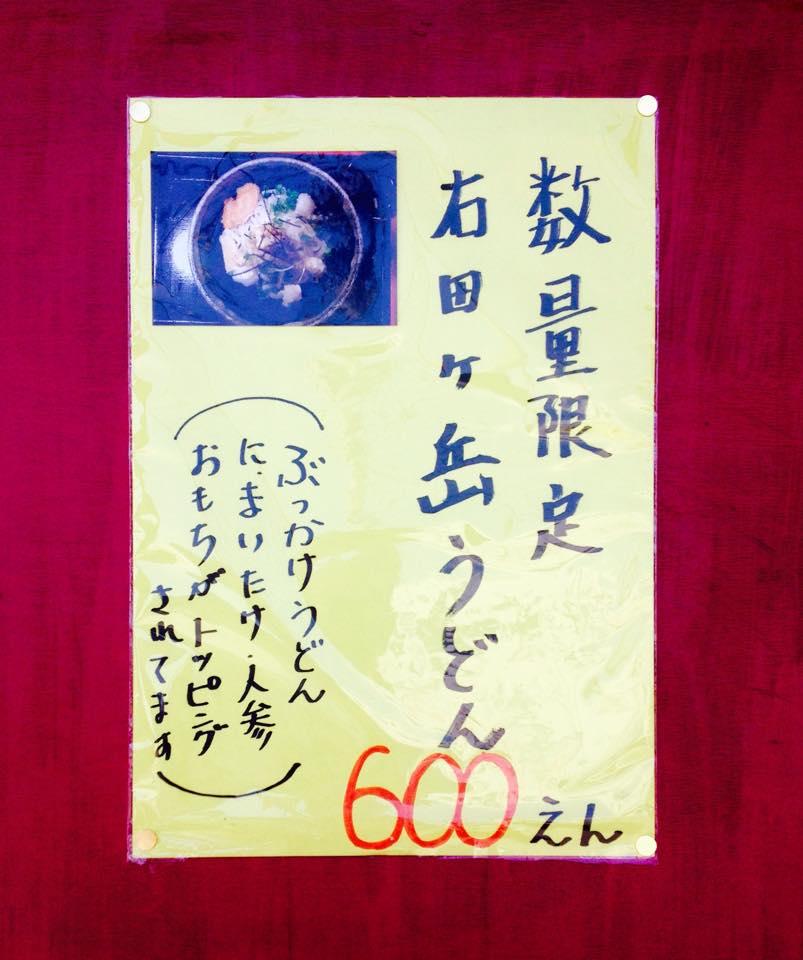 数量限定
右田ヶ岳うどん
600えん
(ぶっかけうどん
に、まいたけ・人参
おもちがトッピング
されてます)